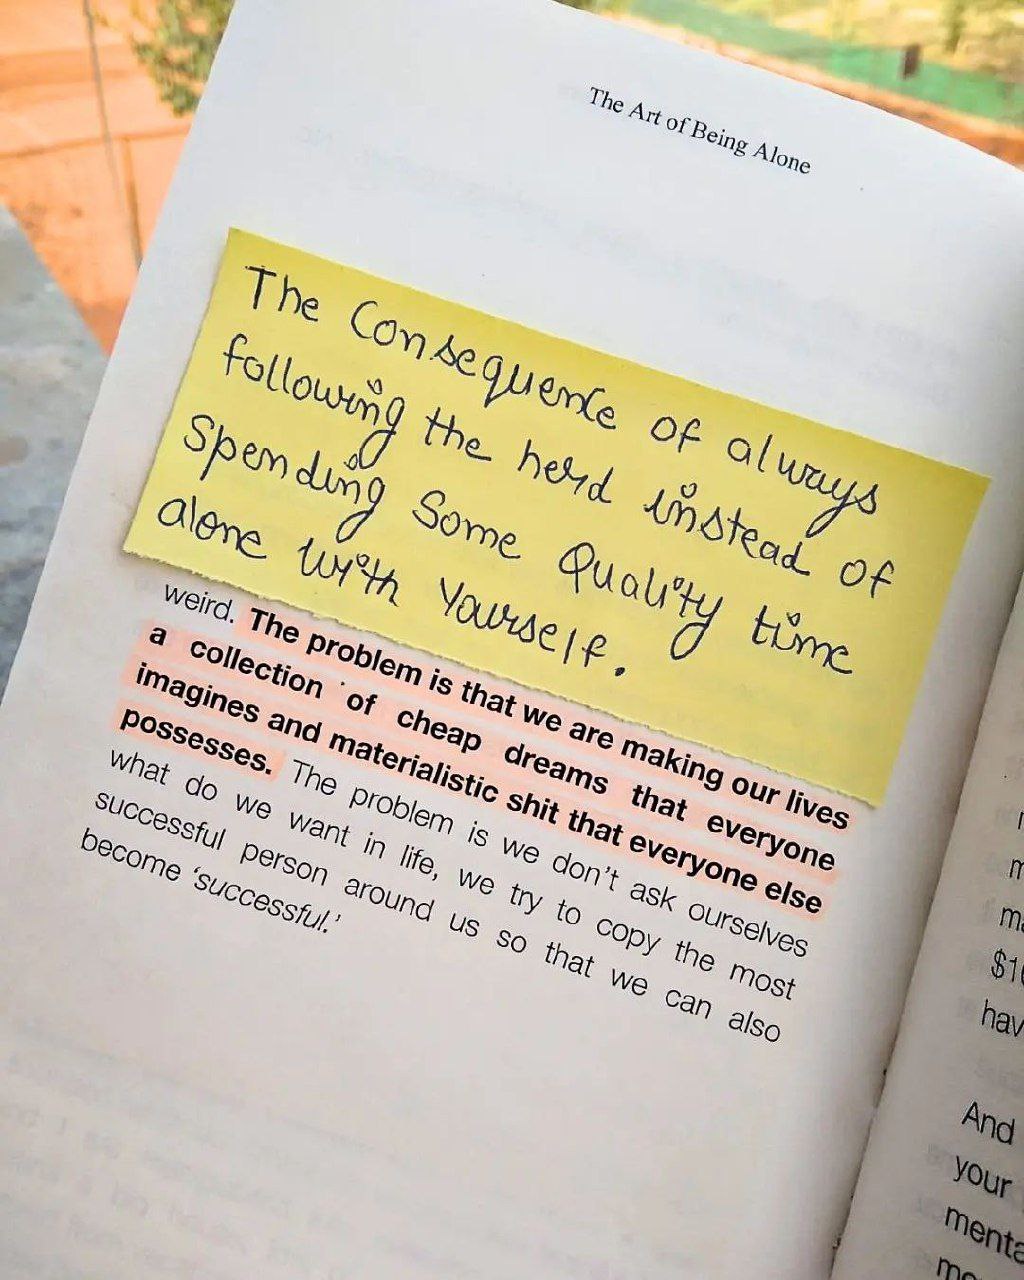 The Art of Being Alone
The Consequence of always
following the herd instead of
Spending Some Quality time
alone with Yourself.
weird. The problem is that we are making our lives
a collection of cheap dreams that everyone
imagines and materialistic shit that everyone else
possesses. The problem is we don't ask ourselves
what do we want in life, we try to copy the most
successful person around us so that we can also
become 'successful.'
And
your